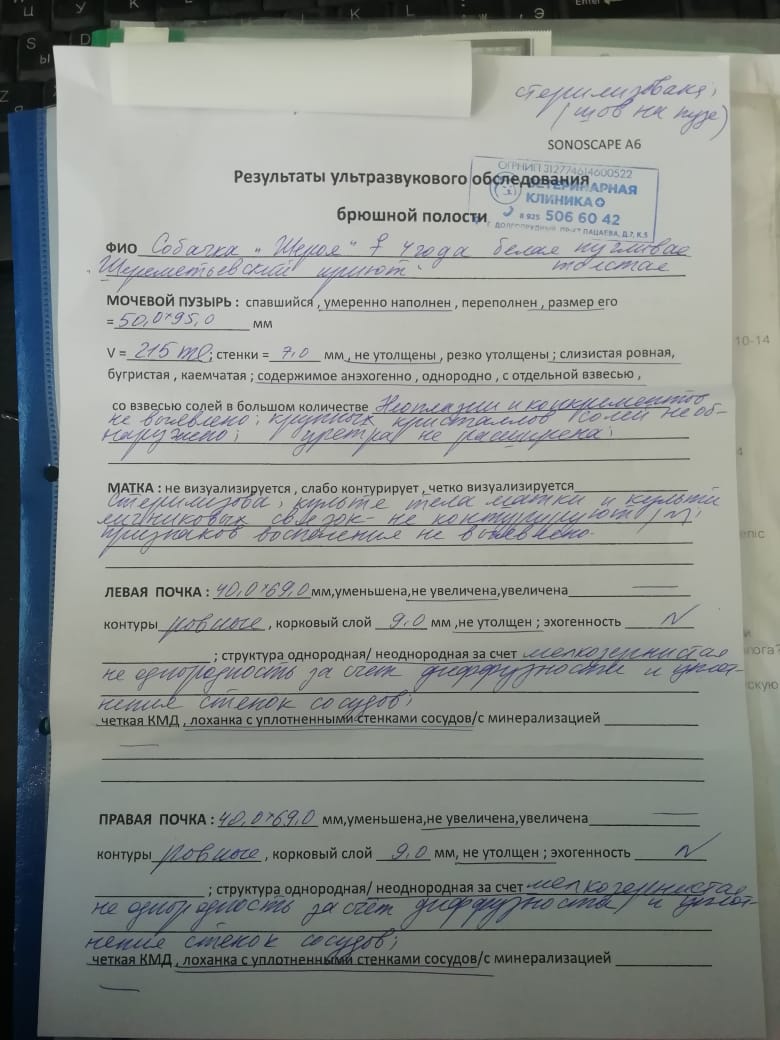 стерилизована,
(шов на пузе)
SONOSCAPE A6
Результаты ультразвукового обследования
ОГРНИП 312774614600522
ВЕТЕРИНАРНАЯ
КЛИНИКА
8 925 506 60 42
Г. ДОЛГОПРУДНЫЙ, ПР-КТ ПАЦАЕВА, Д.7, К.5
брюшной полости
ФИО Собачка " " ♀ 4 года белая пугливая
"Шереметьевский приют" толстая
МОЧЕВОЙ ПУЗЫРЬ : спавшийся , умеренно наполнен , переполнен , размер его
= 50,0*95,0 мм
V = 215 ml ; стенки = 7,0 мм , не утолщены , резко утолщены ; слизистая ровная,
бугристая , каемчатая ; содержимое анэхогенно , однородно , с отдельной взвесью ,
со взвесью солей в большом количестве Неоплазии и конкрементов
не выявлено; крупных кристаллов солей не об-
наружено; уретра не расширена;
МАТКА : не визуализируется , слабо контурирует , четко визуализируется
стерилизова, культе тела матки и культи
яичниковых связок - не контурируют (N);
признаков воспаления не выявлено.
ЛЕВАЯ ПОЧКА : 40,0*69,0 мм,уменьшена,не увеличена,увеличена
контуры ровные , корковый слой 9,0 мм ,не утолщен ; эхогенность N
; структура однородная/ неоднородная за счет мелкозернистая
не однородность за счет диффузности и уплот-
нения стенок сосудов;
четкая КМД , лоханка с уплотненными стенками сосудов/с минерализацией
ПРАВАЯ ПОЧКА : 40,0*69,0 мм,уменьшена,не увеличена,увеличена
контуры ровные , корковый слой 9,0 мм , не утолщен ; эхогенность N
; структура однородная/ неоднородная за счет мелкозернистая
не однородность за счет диффузности и уплот-
нение стенок сосудов;
четкая КМД , лоханка с уплотненными стенками сосудов/с минерализацией
10-14